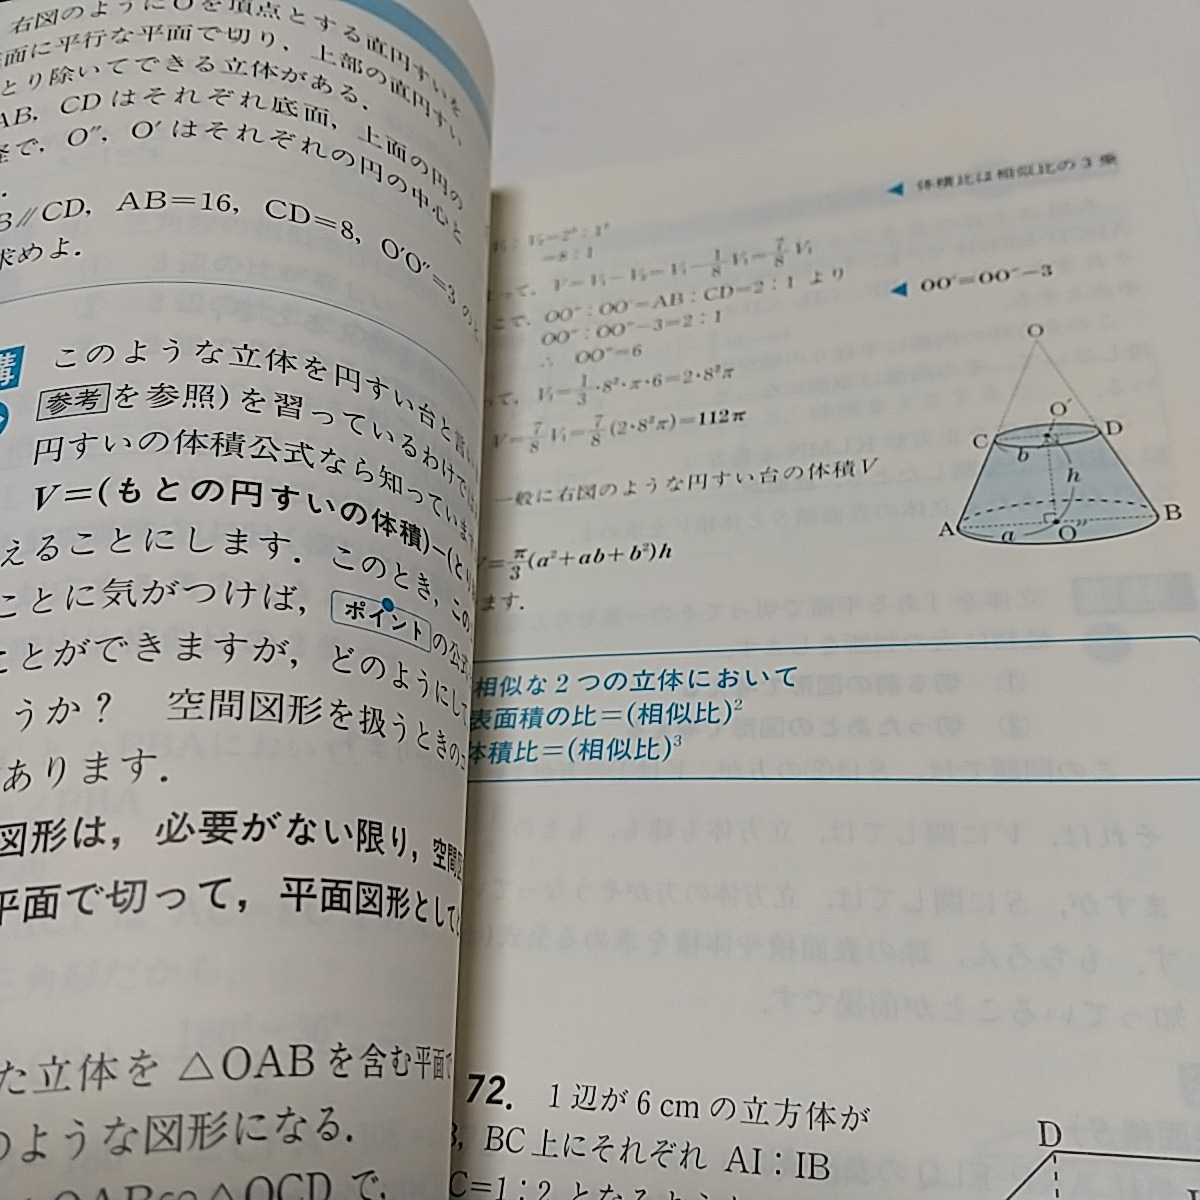 右図のようにOを頂点とする直円すいを
面に平行な平面で切り，上部の直円すい
とり除いてできる立体がある．
AB，CDはそれぞれ底面，上面の円の
径で，O″，O′はそれぞれの円の中心と
B∥CD，AB=16，CD=8，O′O″=3 のと
求めよ．
このような立体を円すい台と言い
参考を参照）を習っているわけでは
円すいの体積公式なら知っています
V=(もとの円すいの体積)−(とり
えることにします．このとき，この
ことに気がつけば，ポイントの公式
ことができますが，どのようにして
うか？ 空間図形を扱うときのコ
あります．
図形は，必要がない限り，空間図
平面で切って，平面図形としてと
た立体を △OAB を含む平面で
のような図形になる．
△OAB∽△OCD で，
◀ 体積比は相似比の3乗
V₁：V₂=2³：1³
=8：1
って，V=V₁−V₂=V₁−1/8 V₁=7/8 V₁
こで，OO″：OO′=AB：CD=2：1 より
OO″：OO″−3=2：1
◀ OO′=OO″−3
∴ OO″=6
って，V₁=1/3・8²・π・6=2・8²π
V=7/8 V₁=7/8(2・8²π)=112π
一般に右図のような円すい台の体積V
V=π/3(a²+ab+b²)h
ます．
O
O′
C
D
b
h
A
B
a
O″
相似な2つの立体において
表面積の比=(相似比)²
体積比=(相似比)³
72． 1辺が6cmの立方体が
，BC上にそれぞれ AI：IB
C=1：2 となるように
D